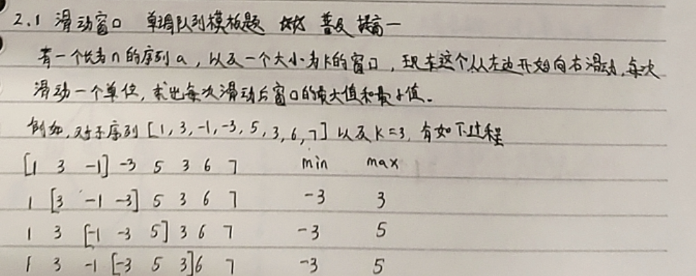 2.1 滑动窗口 单调队列模板题 普及 提高一
有一个长为n的序列a，以及一个大小为k的窗口，现在这个从左边开始向右滑动，每次
滑动一个单位，求出每次滑动后窗口的最大值和最小值。
例如，对于序列[1,3,-1,-3,5,3,6,7]以及k=3，有如下过程
[1 3 -1] -3 5 3 6 7 min max
1 [3 -1 -3] 5 3 6 7 -3 3
1 3 [-1 -3 5] 3 6 7 -3 5
1 3 -1 [-3 5 3] 6 7 -3 5